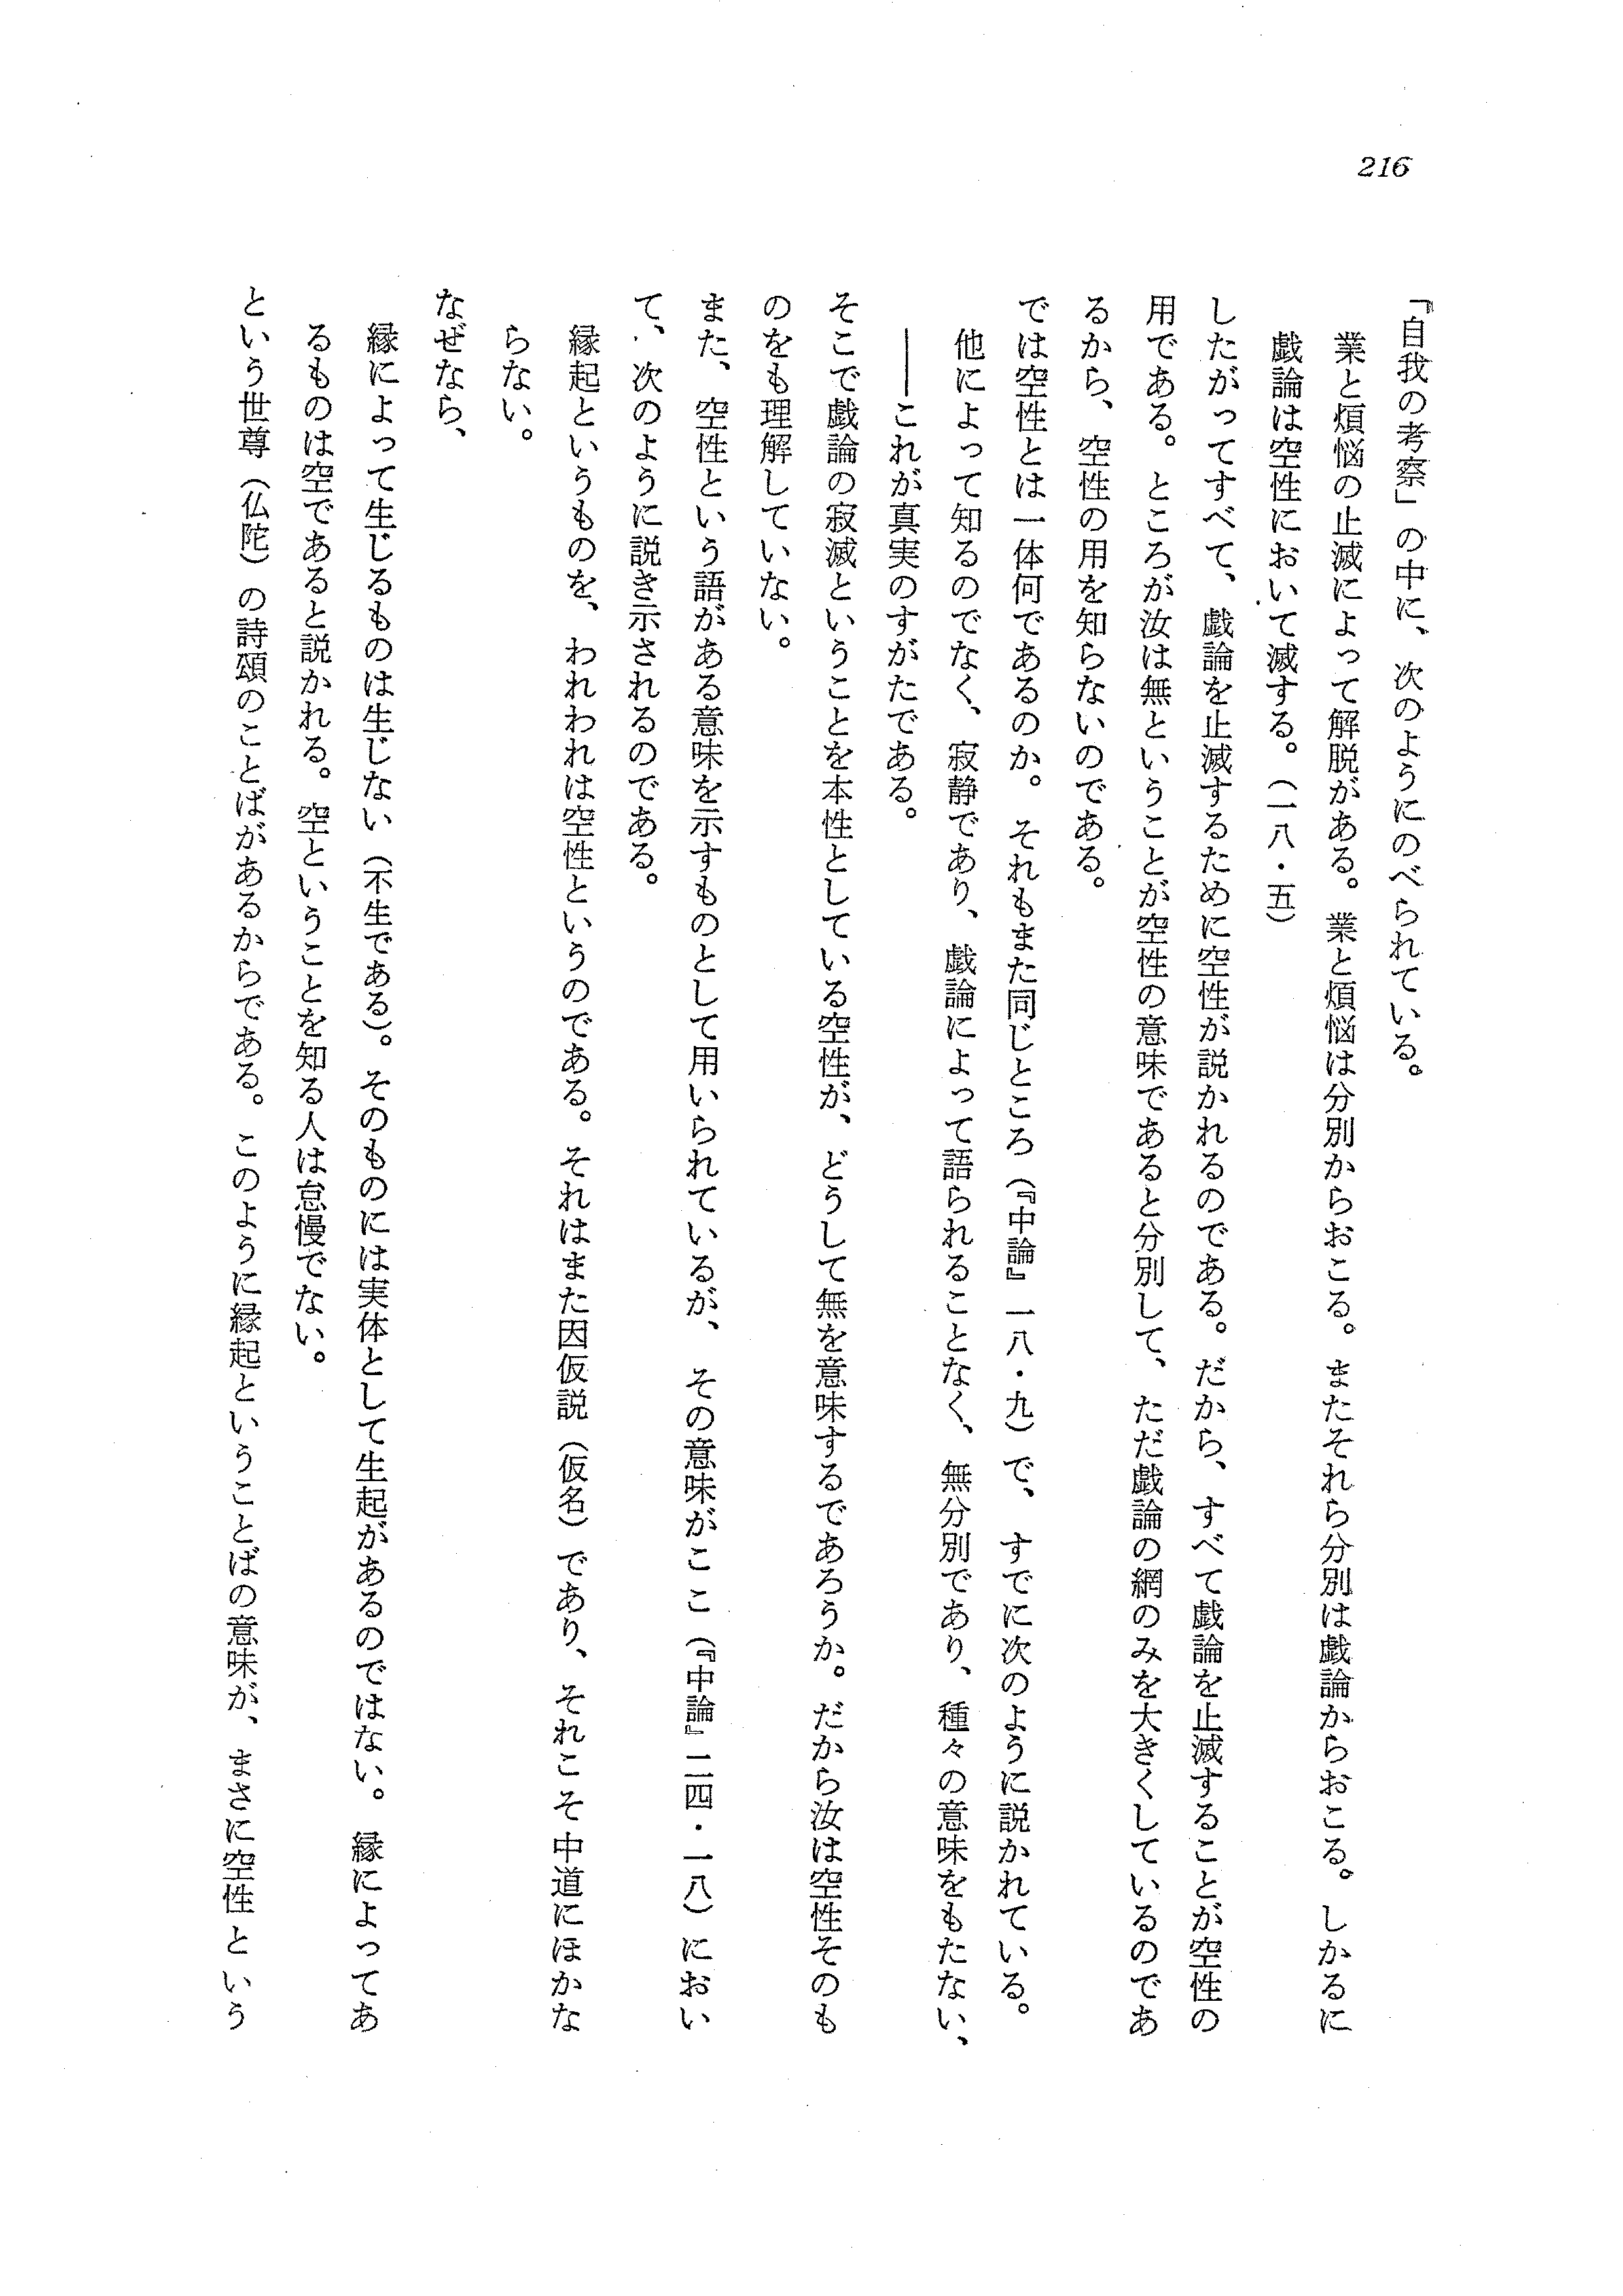 216
「自我の考察」の中に、次のようにのべられている。
業と煩悩の止滅によって解脱がある。業と煩悩は分別からおこる。またそれら分別は戯論からおこる。しかるに
戯論は空性において滅する。（一八・五）
したがってすべて、戯論を止滅するために空性が説かれるのである。だから、すべて戯論を止滅することが空性の
用である。ところが汝は無ということが空性の意味であると分別して、ただ戯論の網のみを大きくしているのであ
るから、空性の用を知らないのである。
では空性とは一体何であるのか。それもまた同じところ（『中論』一八・九）で、すでに次のように説かれている。
他によって知るのでなく、寂静であり、戯論によって語られることなく、無分別であり、種々の意味をもたない、
――これが真実のすがたである。
そこで戯論の寂滅ということを本性としている空性が、どうして無を意味するであろうか。だから汝は空性そのも
のをも理解していない。
また、空性という語がある意味を示すものとして用いられているが、その意味がここ（『中論』二四・一八）におい
て、次のように説き示されるのである。
縁起というものを、われわれは空性というのである。それはまた因仮説（仮名）であり、それこそ中道にほかな
らない。
なぜなら、
縁によって生じるものは生じない（不生である）。そのものには実体として生起があるのではない。縁によってあ
るものは空であると説かれる。空ということを知る人は怠慢でない。
という世尊（仏陀）の詩頌のことばがあるからである。このように縁起ということばの意味が、まさに空性という